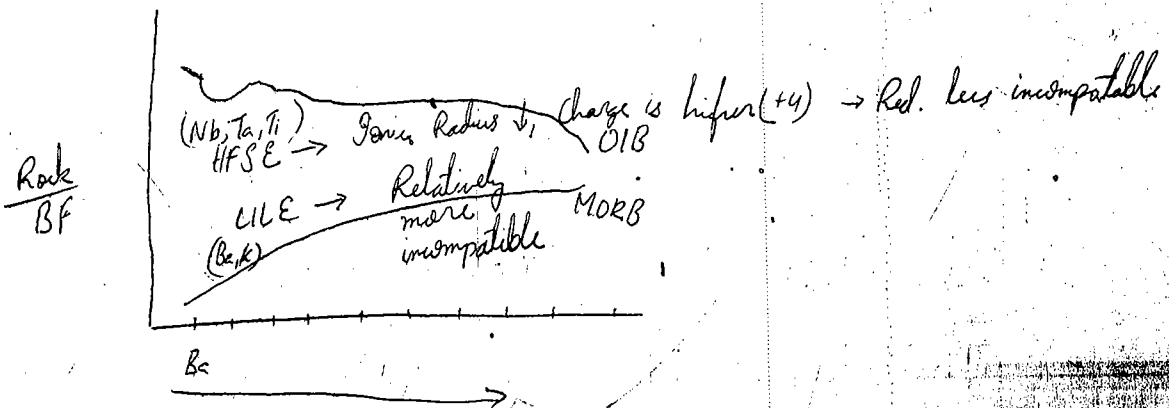 (Nb, Ta, Ti)
HFSE → Ionic Radius ↓, Charge is higher (+4) → Rel. less incompatible
OIB
Rock
BF
LILE → Relatively more incompatible
(Ba, K)
MORB
Ba